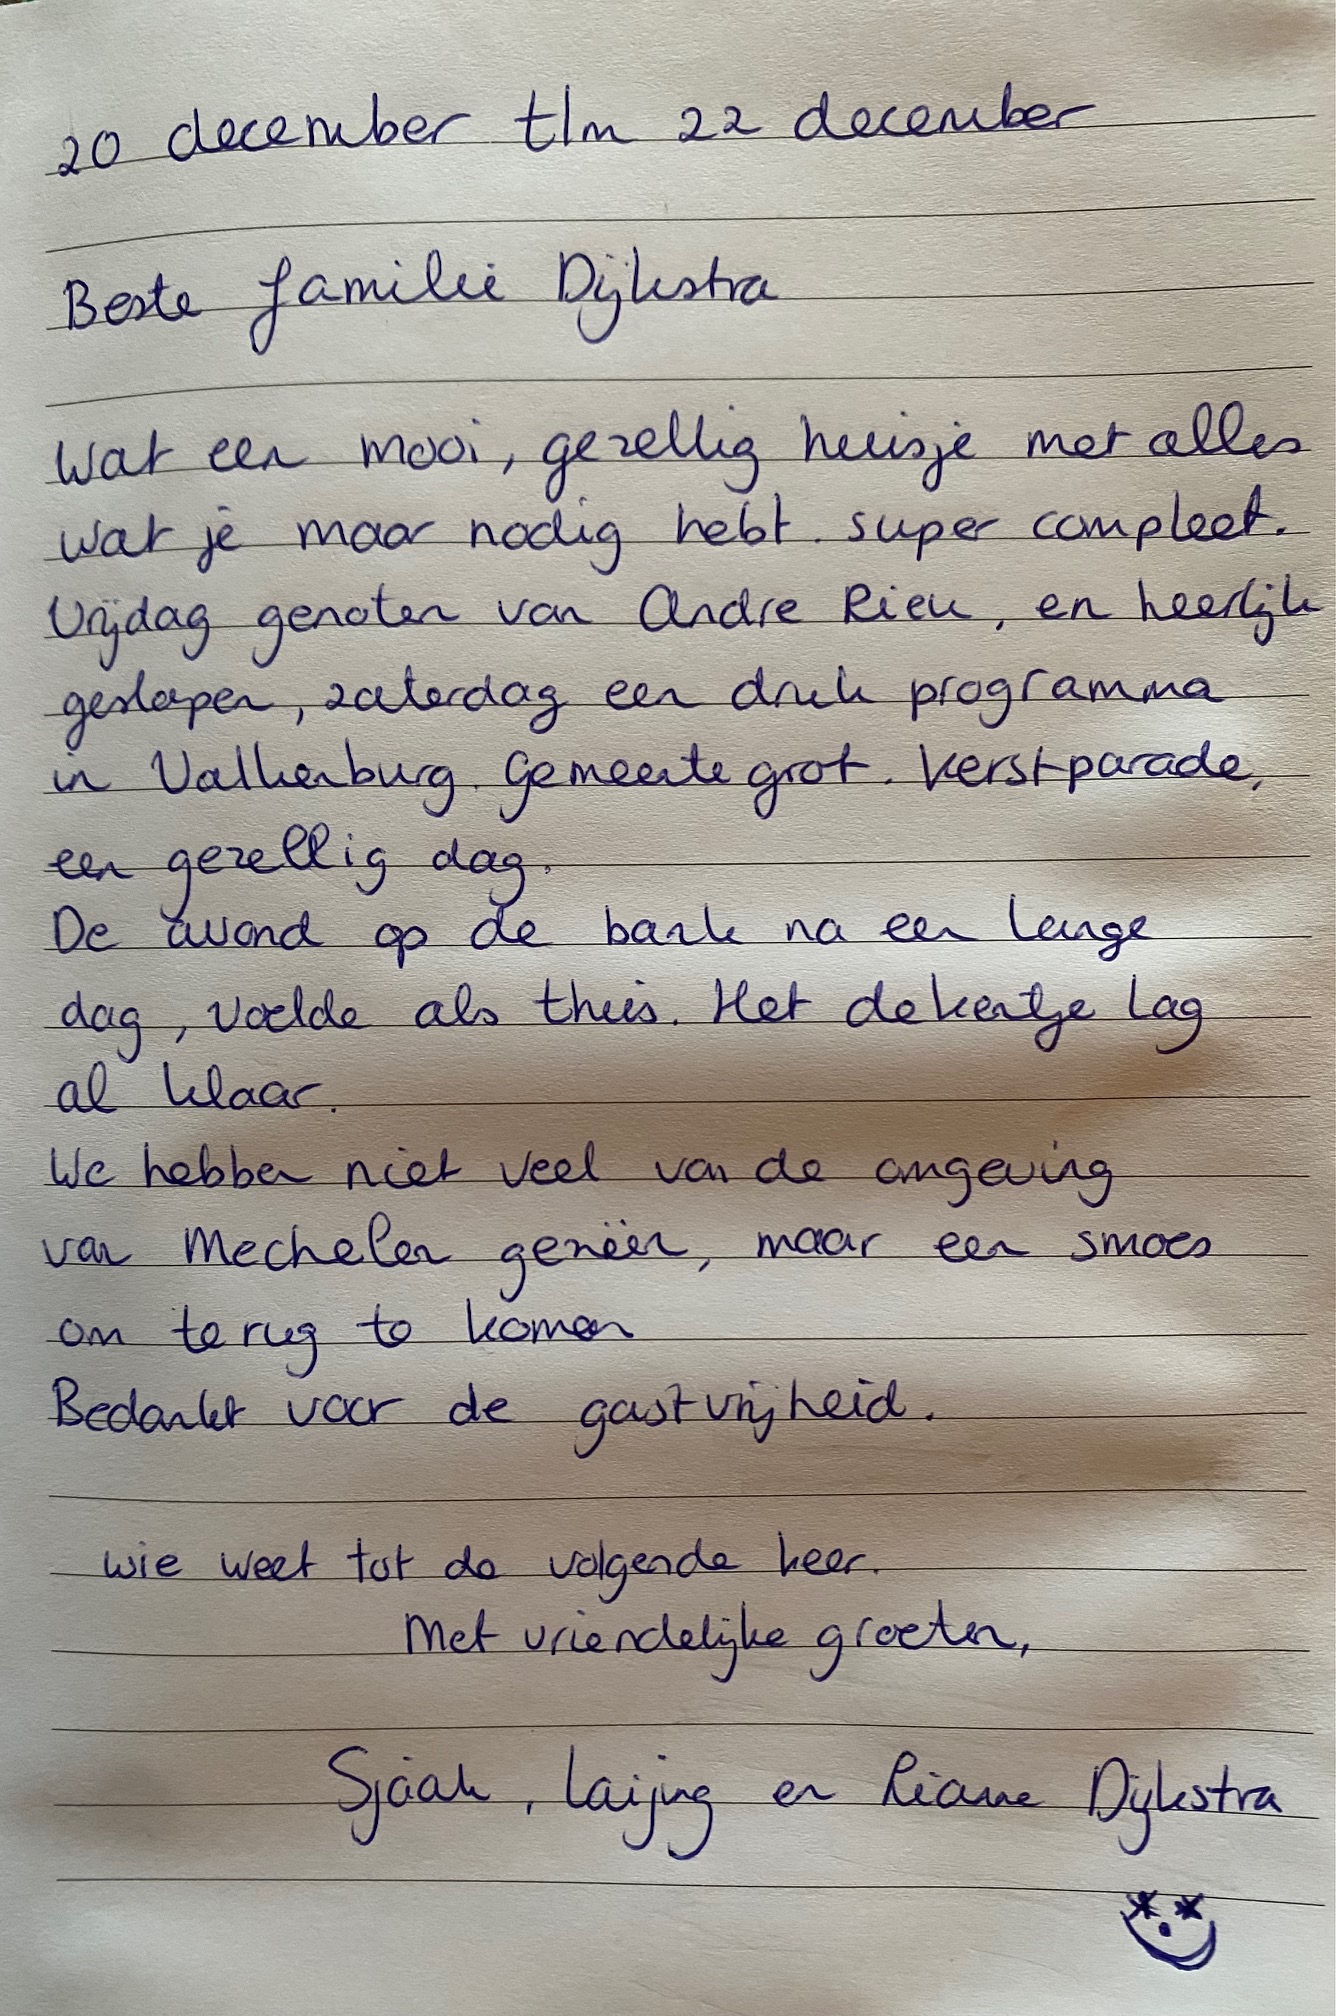 20 december t/m 22 december
Beste familie Dijkstra
Wat een mooi, gezellig huisje met alles
wat je maar nodig hebt. super compleet.
Vrijdag genoten van Andre Rieu, en heerlijk
geslapen, zaterdag een druk programma
in Valkenburg. Gemeentegrot. Kerstparade,
een gezellig dag.
De avond op de bank na een lange
dag, voelde als thuis. Het dekentje lag
al klaar.
We hebben niet veel van de omgeving
van Mechelen gezien, maar een smoes
om terug te komen
Bedankt voor de gastvrijheid.
wie weet tot de volgende keer.
Met vriendelijke groeten,
Sjaak, Laijng en Riane Dijkstra